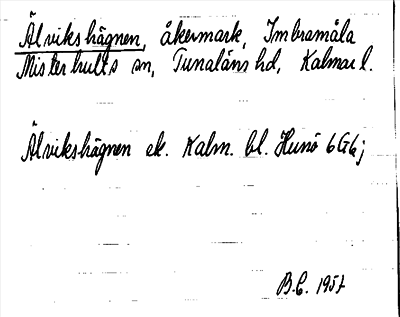 Älvikshägnen, åkermark, Imbramåla
Misterhults sn, Tunaläns hd, Kalmar l.
Älvikshägnen ek. Kalm. bl. Hunö 6G6j
B.C. 1957